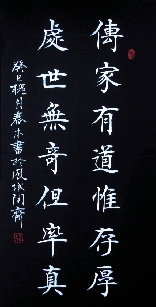 傳家有道惟存厚
處世無奇但率真
癸巳桃月泰末書於鳳城閑齋